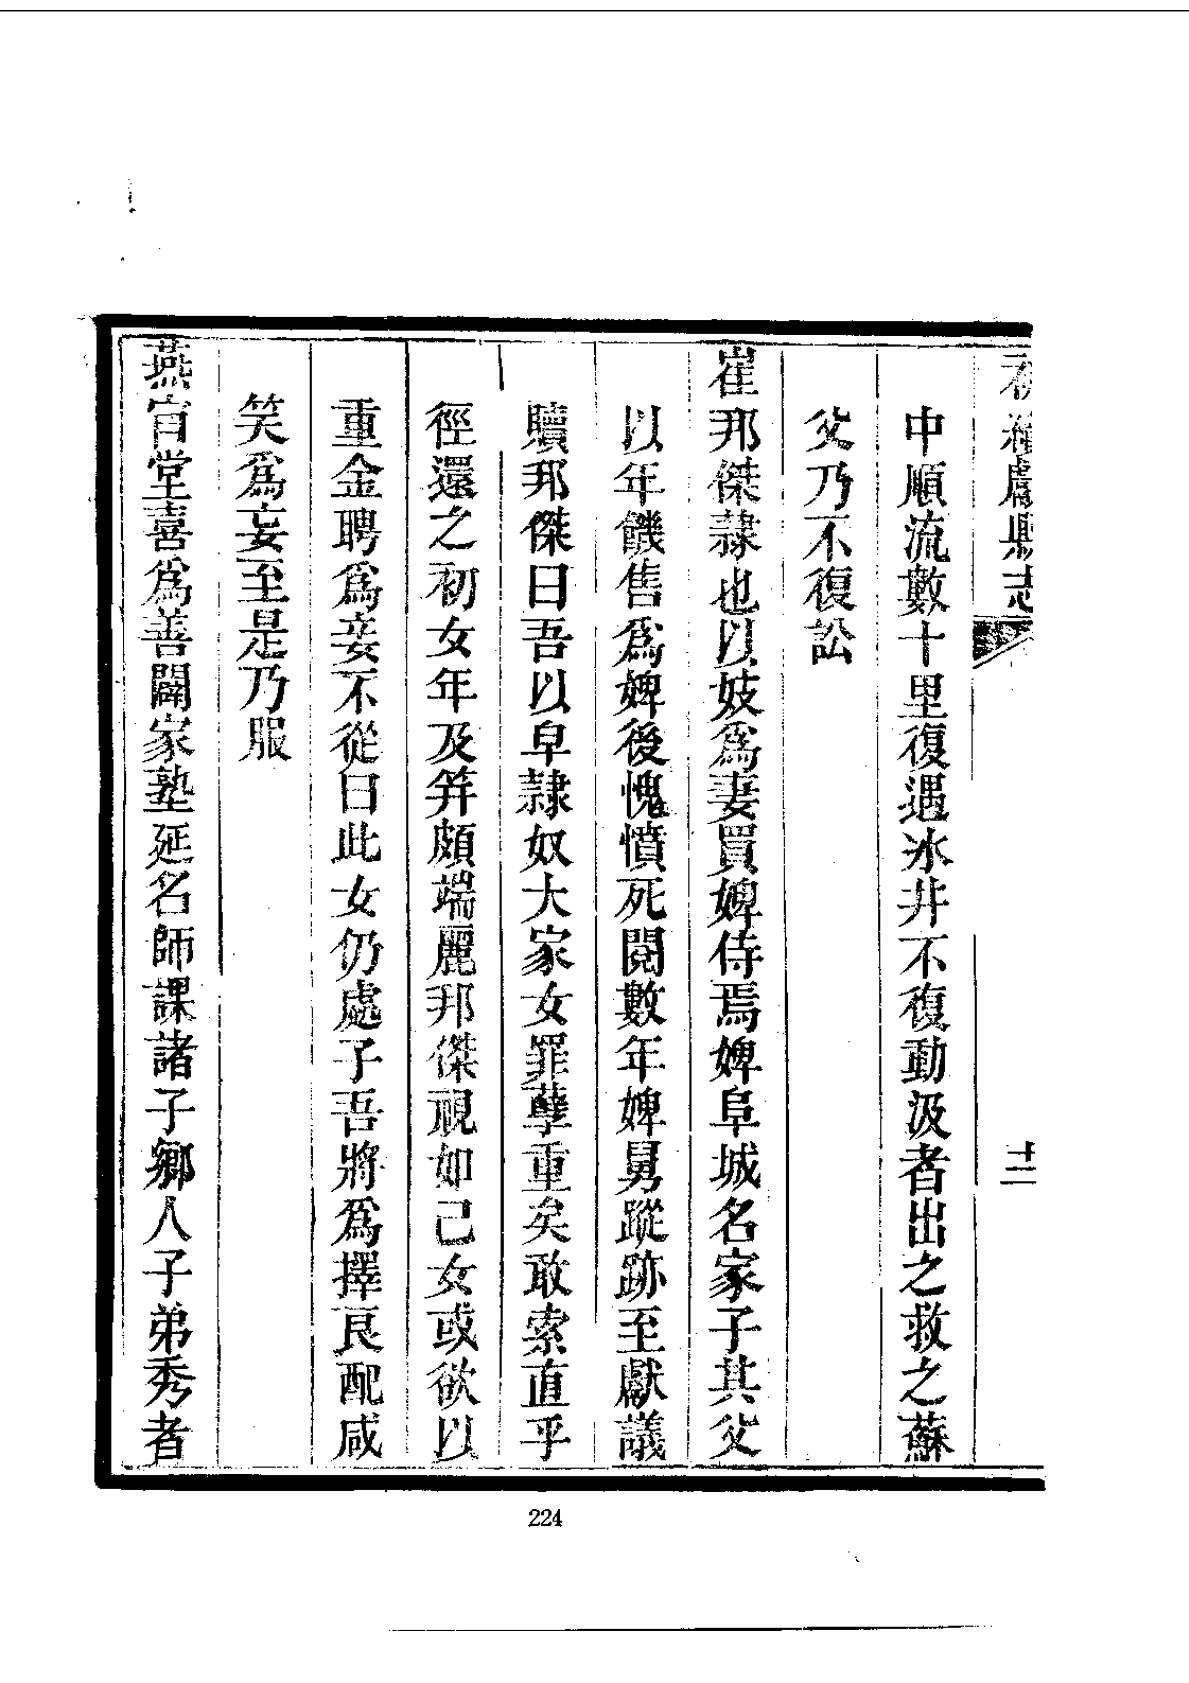 初續獻縣志
十二
中順流數十里復遇冰井不復動汲者出之救之蘇
父乃不復訟
崔邦傑隷也以妓爲妻買婢侍焉婢阜城名家子其父
以年饑售爲婢後愧憤死閱數年婢舅蹤跡至獻議
贖邦傑曰吾以皁隷奴大家女罪孽重矣敢索直乎
徑還之初女年及笄頗端麗邦傑視如己女或欲以
重金聘爲妾不從曰此女仍處子吾將爲擇良配咸
笑爲妄至是乃服
燕肯堂喜爲善闢家塾延名師課諸子鄉人子弟秀者
224